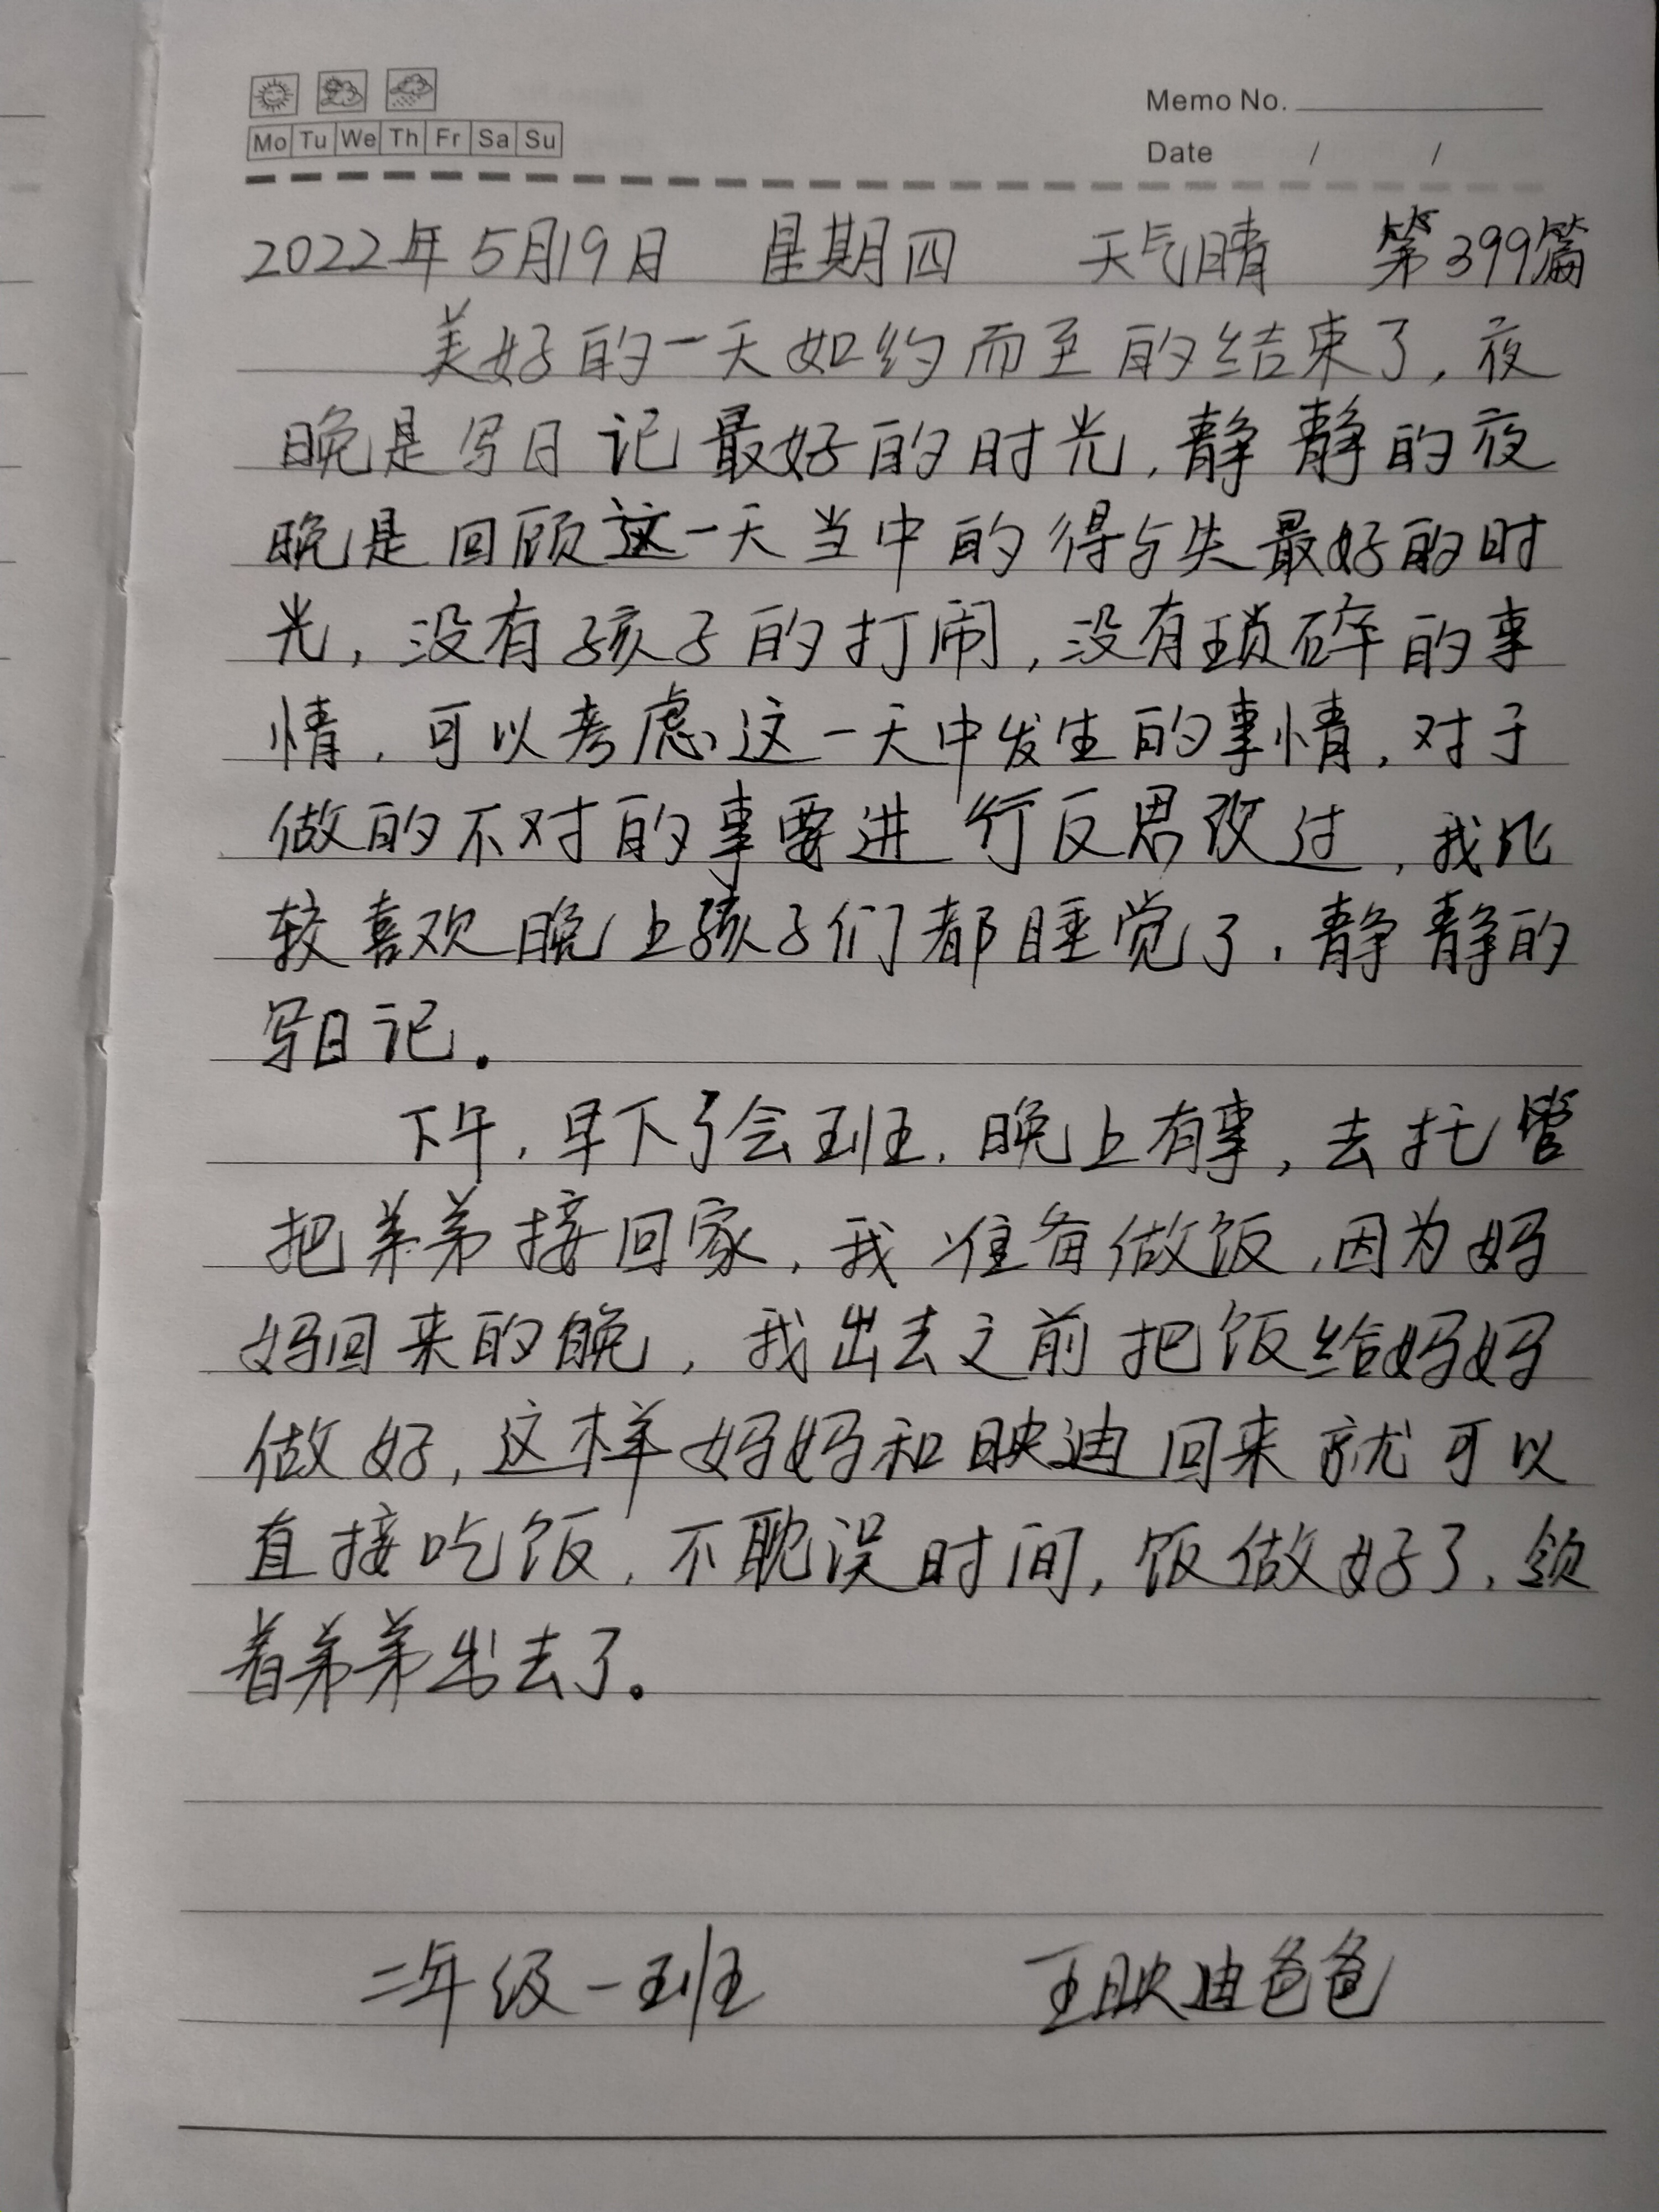 Memo No.
Mo Tu We Th Fr Sa Su
Date / /
2022年5月19日 星期四 天气晴 第399篇
美好的一天如约而至的结束了,夜
晚是写日记最好的时光,静静的夜
晚是回顾这一天当中的得与失最好的时
光,没有孩子的打闹,没有琐碎的事
情,可以考虑这一天中发生的事情,对于
做的不对的事要进行反思改过,我比
较喜欢晚上孩子们都睡觉了,静静的
写日记。
下午,早下了会班,晚上有事,去托管
把弟弟接回家,我准备做饭,因为妈
妈回来的晚,我出去之前把饭给妈妈
做好,这样妈妈和映迪回来就可以
直接吃饭,不耽误时间,饭做好了,领
着弟弟出去了。
二年级一班 王映迪爸爸